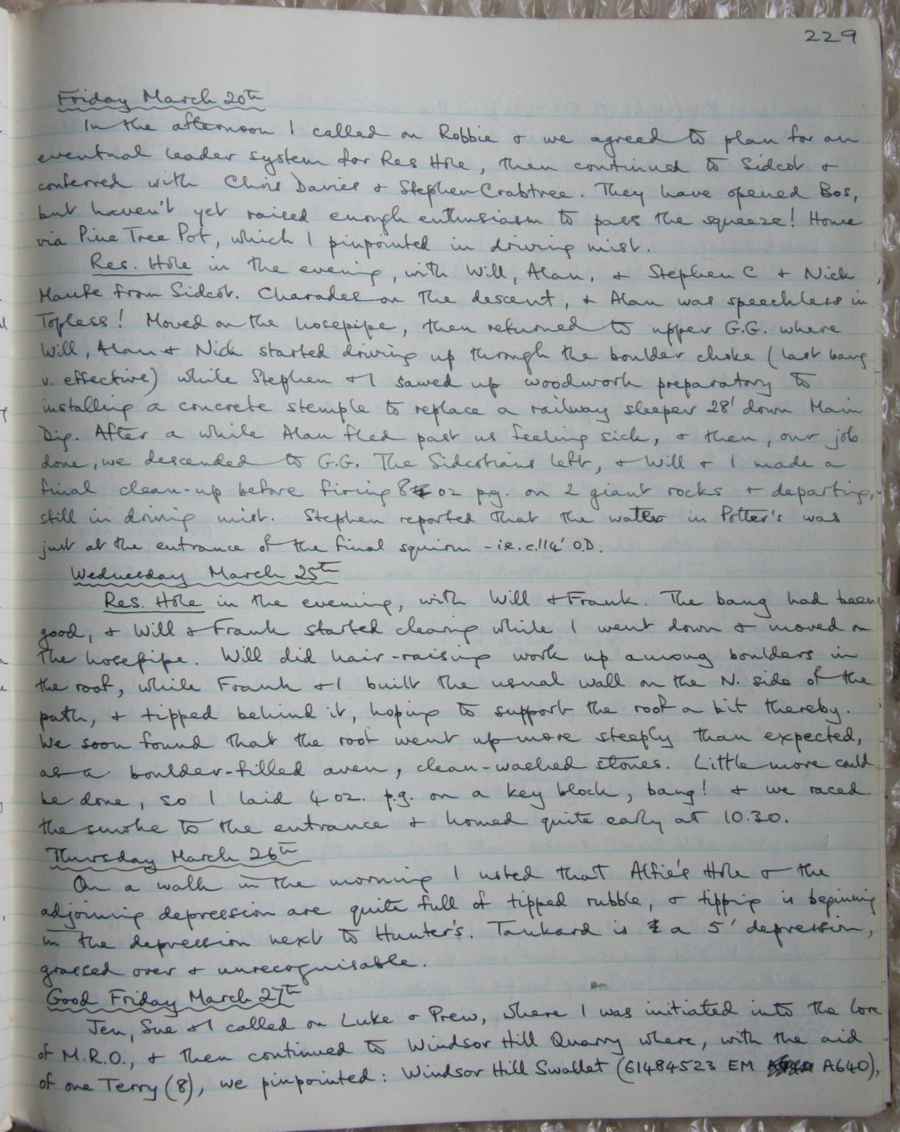 229
Friday March 20th
In the afternoon I called on Robbie & we agreed to plan for an
eventual leader system for Res Hole, then continued to Sidcot &
conferred with Chris Davies & Stephen Crabtree. They have opened Bos,
but haven't yet raised enough enthusiasm to pass the squeeze! Home
via Pine Tree Pot, which I pinpointed in driving mist.
Res. Hole in the evening, with Will, Alan, & Stephen C & Nick
from Sidcot. Charades on the descent, & Alan was speechless in
Topless! Moved on the hosepipe, then returned to upper G.G. where
Will, Alan & Nick started driving up through the boulder choke (last bang
v. effective) while Stephen & I sawed up woodwork preparatory to
installing a concrete stemple to replace a railway sleeper 28' down Main
Dig. After a while Alan fled past us feeling sick, & then, our job
done, we descended to G.G. The Sidcotians left, & Will & I made a
final clean-up before firing 8 oz p.g. on 2 giant rocks & departing,
still in driving mist. Stephen reported that the water in Potter's was
just at the entrance of the final squirm - i.e. c.114' O.D.
Wednesday March 25th
Res. Hole in the evening, with Will & Frank. The bang had been
good, & Will & Frank started clearing while I went down & moved on
the hosepipe. Will did hair-raising work up among boulders in
the roof, while Frank & I built the usual wall on the N. side of the
path, & tipped behind it, hoping to support the roof a bit thereby.
We soon found that the roof went up more steeply than expected,
as a boulder-filled aven, clean-washed stones. Little more could
be done, so I laid 4 oz. p.g. on a key block, bang! & we raced
the smoke to the entrance & homed quite early at 10.30.
Thursday March 26th
On a walk in the morning I noted that Alfie's Hole & the
adjoining depression are quite full of tipped rubble, & tipping is beginning
in the depression next to Hunter's. Tankard is a 5' depression,
grassed over & unrecognisable.
Good Friday March 27th
Jen, Sue & I called on Luke & Prew, where I was initiated into the lore
of M.R.O., & then continued to Windsor Hill Quarry where, with the aid
of one Terry (8), we pinpointed: Windsor Hill Swallet (61484523 EM A640),